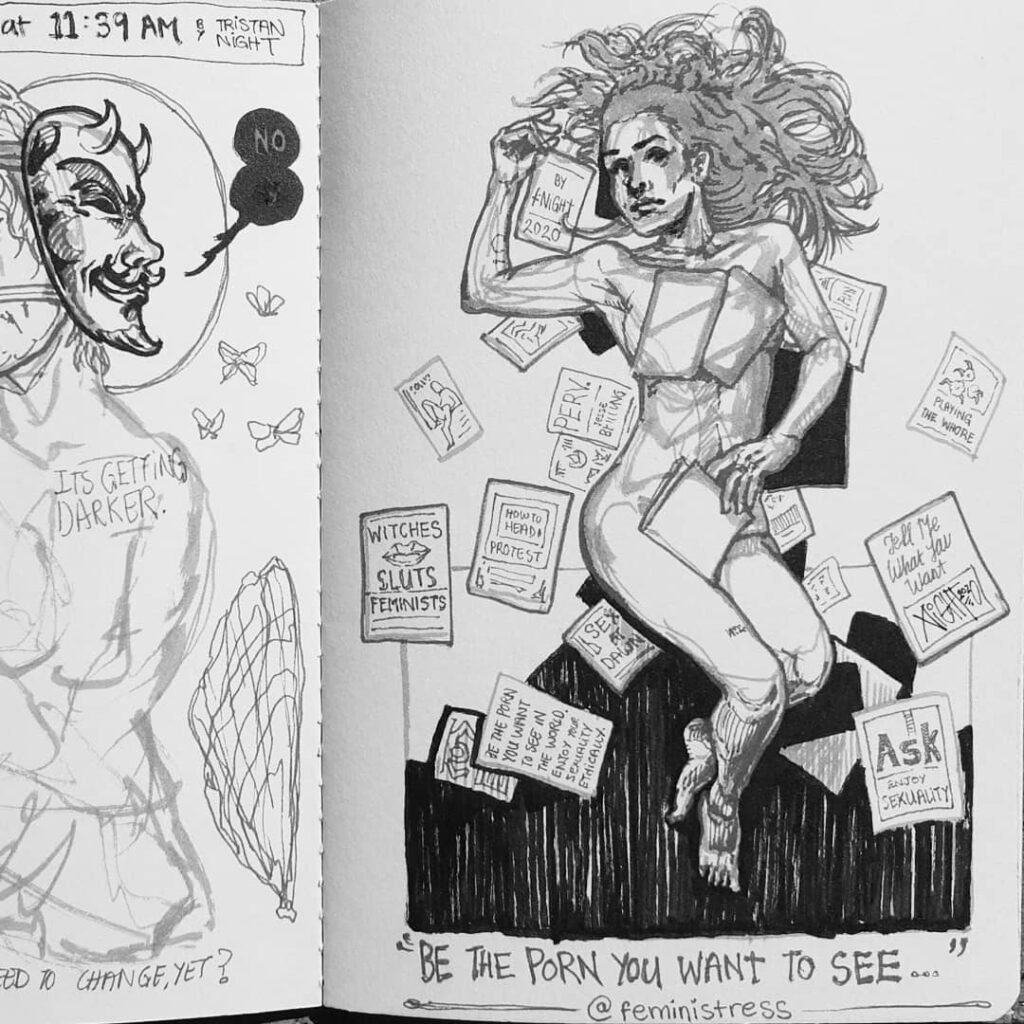 at 11:39 AM BY TRISTAN
NIGHT
NO
ITS GETTING
DARKER.
TO CHANGE, YET?
BY
KNIGHT
2020
PERV.
JESSE
BERING
PLAYING
THE WHORE
WITCHES
SLUTS
FEMINISTS
HOW TO
HEAD
PROTEST
Tell Me
What You
Want
AT
DAWN
BE THE PORN
YOU WANT
TO SEE IN
THE WORLD.
ENJOY YOUR
SEXUALITY
ETHICALLY.
Ask
ENJOY
SEXUALITY
"BE THE PORN YOU WANT TO SEE..."
@feministress